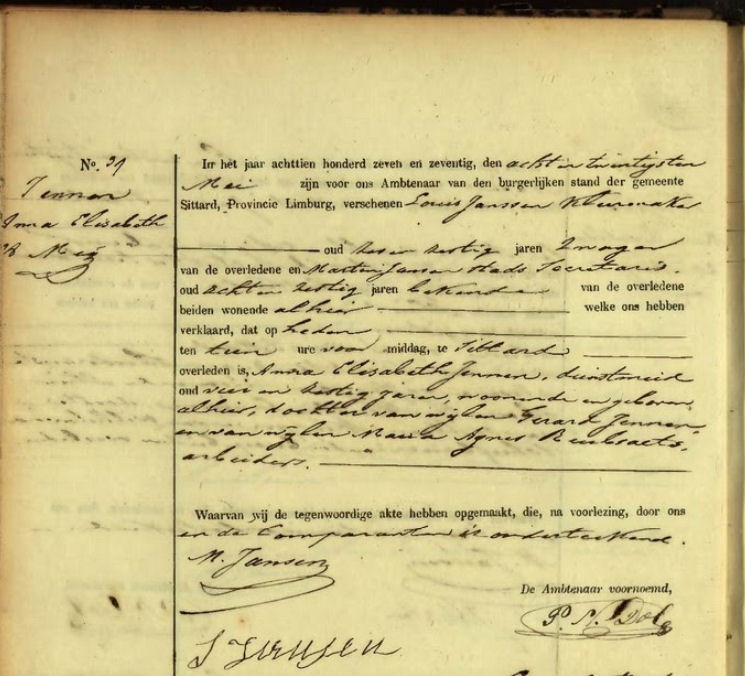 No. 37
Jennen
Anna Elisabeth
28 Mei
In het jaar achttien honderd zeven en zeventig, den acht en twintigsten
Mei zijn voor ons Ambtenaar van den burgerlijken stand der gemeente
Sittard, Provincie Limburg, verschenen Louis Janssen kleermaker
oud zes en zestig jaren Zwager
van de overledene en Martin Jansen stads Secretaris.
oud acht en zestig jaren bekenden van de overledene
beiden wonende alhier welke ons hebben
verklaard, dat op heden
ten tien ure voor middag, te Sittard
overleden is, Anna Elisabeth Jennen, dienstmeid
oud vier en zestig jaren, wonende en geboren
alhier, dochter van wijlen Gerard Jennen
en van wijlen Maria Agnes
arbeiders.
Waarvan wij de tegenwoordige akte hebben opgemaakt, die, na voorlezing, door ons
en de Comparanten is onderteekend.
M. Jansen
De Ambtenaar voornoemd,
P. N. Dols
L Jansen